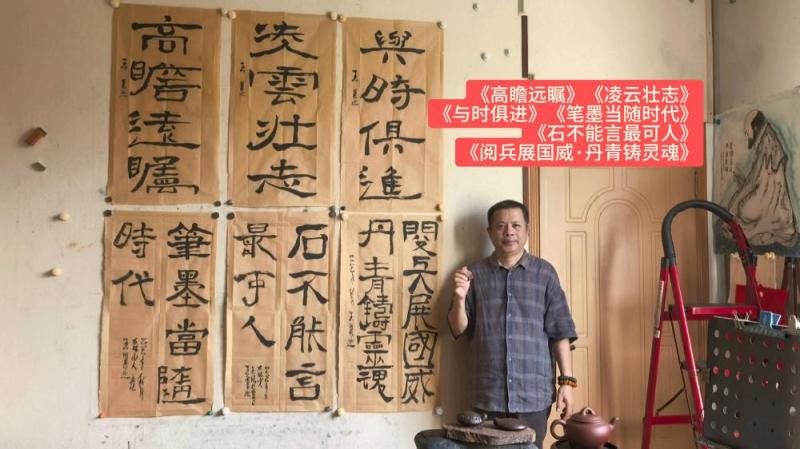 高瞻遠矚
凌雲壯志
與時俱進
筆墨當隨
時代
石不能言
最可人
閱兵展國威
丹青鑄靈魂
《高瞻远瞩》《凌云壮志》
《与时俱进》《笔墨当随时代》
《石不能言最可人》
《阅兵展国威·丹青铸灵魂》